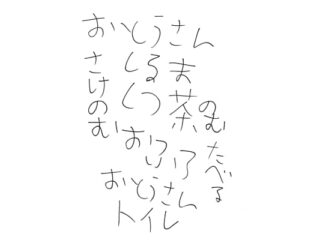 おとうさん
さけのむ
くるま
くつ
茶のむ
おふろ
たべる
おとうさん
トイレ